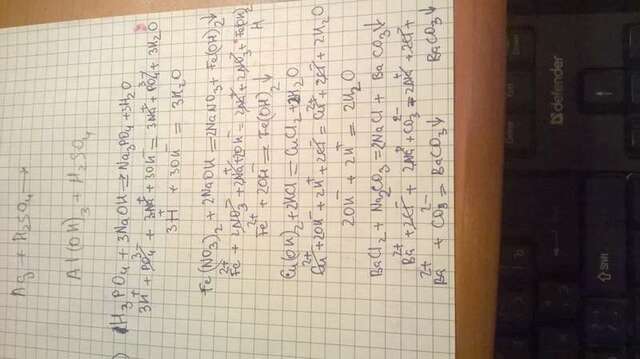 Ag + H₂SO₄ →
Al(OH)₃ + H₂SO₄
H₃PO₄ + 3NaOH = Na₃PO₄ + 3H₂O
3H⁺ + PO₄³⁻ + 3Na⁺ + 3OH⁻ = 3Na⁺ + PO₄³⁻ + 3H₂O
3H⁺ + 3OH⁻ = 3H₂O
Fe(NO₃)₂ + 2NaOH = 2NaNO₃ + Fe(OH)₂↓
Fe²⁺ + 2NO₃⁻ + 2Na⁺ + 2OH⁻ = 2Na⁺ + 2NO₃⁻ + Fe(OH)₂
Fe²⁺ + 2OH⁻ = Fe(OH)₂↓
Cu(OH)₂ + 2HCl = CuCl₂ + 2H₂O
Cu²⁺ + 2OH⁻ + 2H⁺ + 2Cl⁻ = Cu²⁺ + 2Cl⁻ + 2H₂O
2OH⁻ + 2H⁺ = 2H₂O
BaCl₂ + Na₂CO₃ = 2NaCl + BaCO₃↓
Ba²⁺ + 2Cl⁻ + 2Na⁺ + CO₃²⁻ = 2Na⁺ + 2Cl⁻ +
BaCO₃↓
Ba²⁺ + CO₃²⁻ = BaCO₃↓
defender
Shift